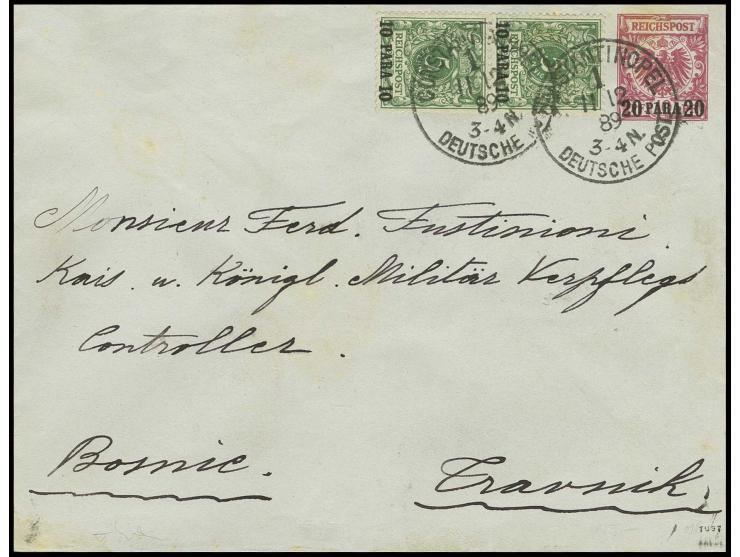 10 PARA 10
REICHSPOST
5
10 PARA 10
REICHSPOST
5
REICHSPOST
20 PARA 20
CONSTANTINOPEL
1
11 12
89
3-4 N.
DEUTSCHE
CONSTANTINOPEL
1
11 12
89
3-4 N.
DEUTSCHE POST
Monsieur Ferd. Fustinioni
Kais. u. Königl. Militär Verpflegs
Controller.
Bosnie.
Travnik.